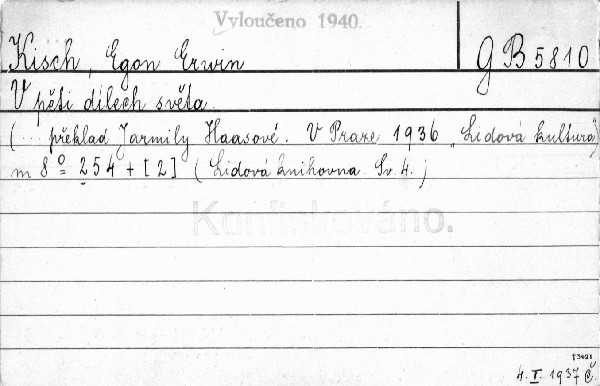 Vyloučeno 1940.
Kisch, Egon Erwin
G B 5810
V pěti dílech světa.
(... překlad Jarmily Haasové. V Praze 1936 „Lidová kultura")
m 8° 254 + [2] (Lidová knihovna Sv. 4.)
Konfiskováno.
4. I. 1937 Č.